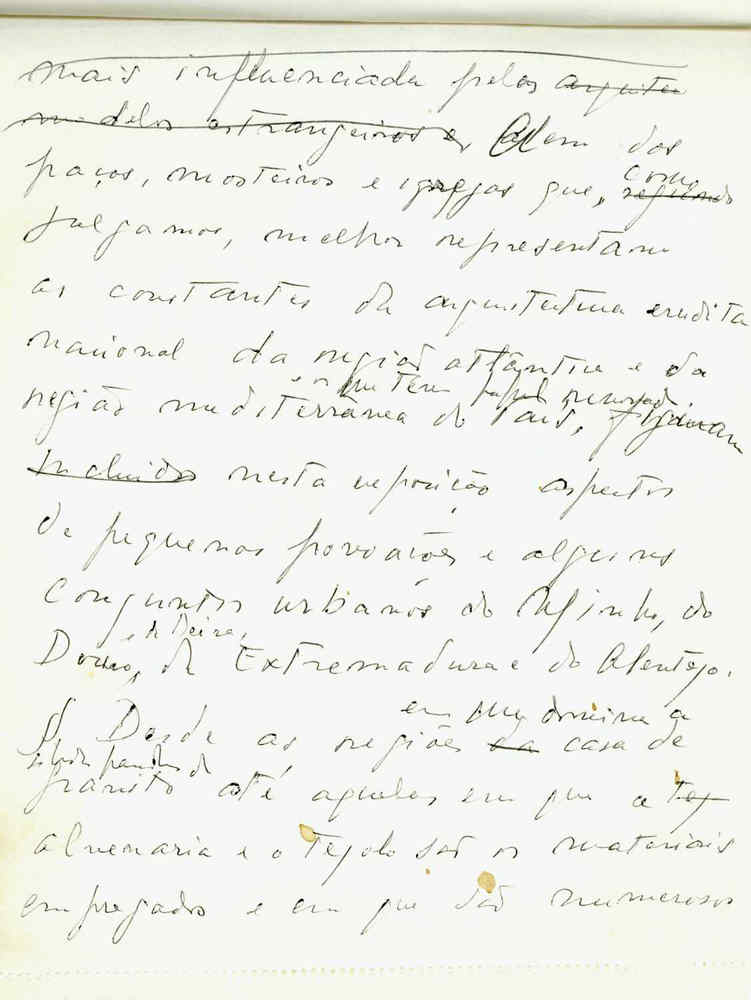 mais influenciada pelos arquite
modelos estrangeiros e, Além dos
como
paços, mosteiros e igrejas que, segundo
julgamos, melhor representam
as constantes da arquitectura erudita
nacional da região atlântica e da
que têm papel
região mediterrânea do País, figuram
incluidos nesta exposição aspectos
de pequenas povoações e alguns
conjuntos urbanos do Minho, do
e da Beira,
Douro, da Extremadura e do Alentejo.
em que domina a
Desde as regiões da casa de
granito até aquelas em que a
alvenaria e o tejolo são os materiais
empregados e em que são numerosos